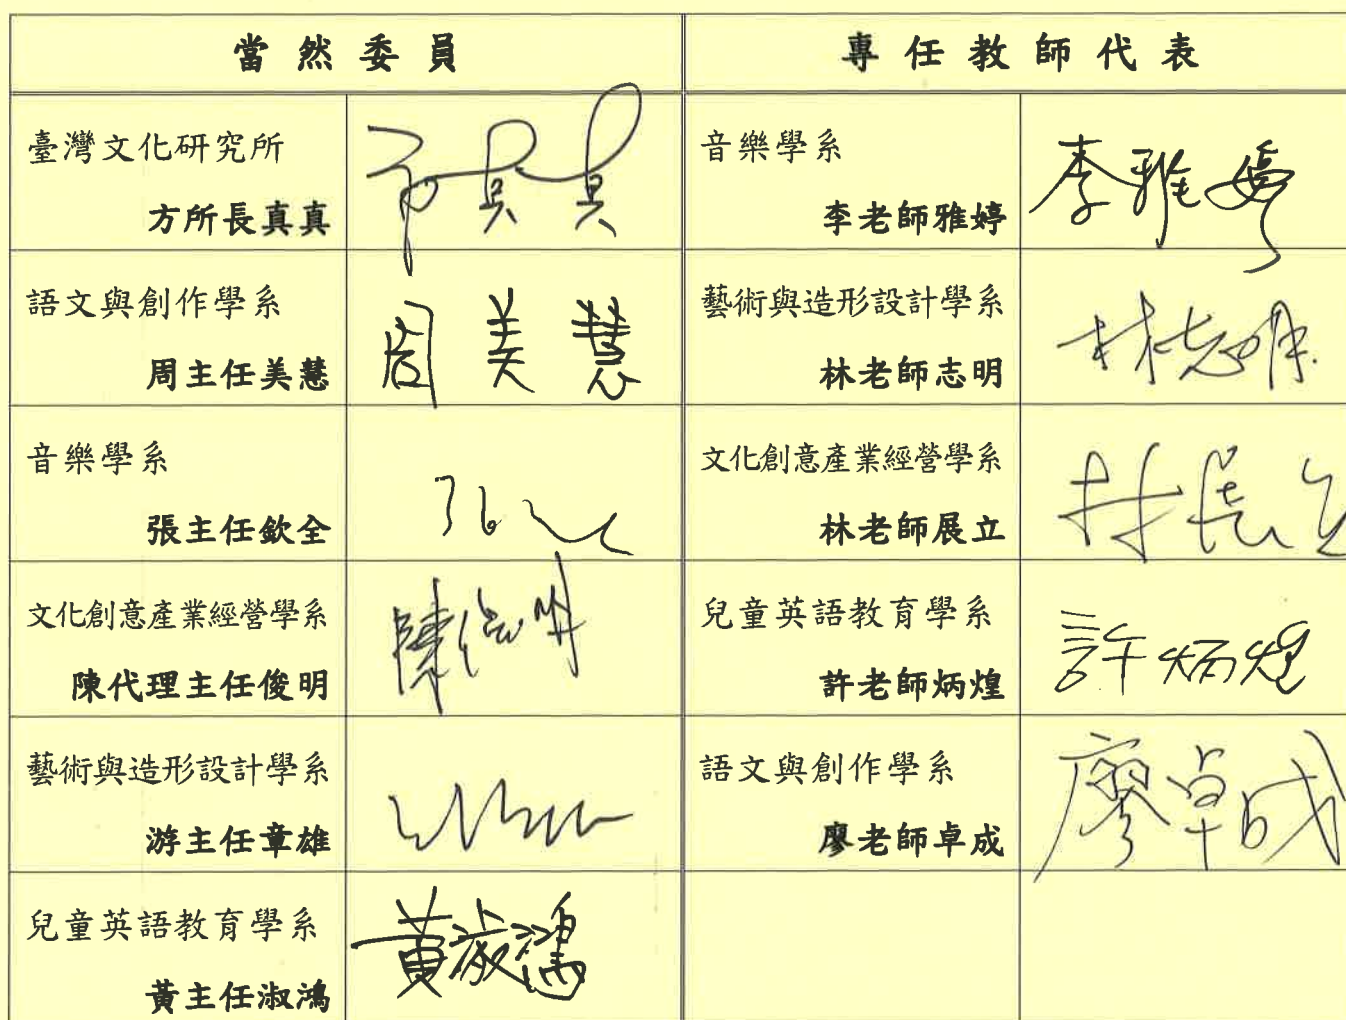 當然委員 專任教師代表
臺灣文化研究所
方所長真真
音樂學系
李老師雅婷
李雅婷
語文與創作學系
周主任美慧
周美慧
藝術與造形設計學系
林老師志明
林志明
音樂學系
張主任欽全
文化創意產業經營學系
林老師展立
林展立
文化創意產業經營學系
陳代理主任俊明
陳俊明
兒童英語教育學系
許老師炳煌
許炳煌
藝術與造形設計學系
游主任章雄
語文與創作學系
廖老師卓成
廖卓成
兒童英語教育學系
黃主任淑鴻
黃淑鴻